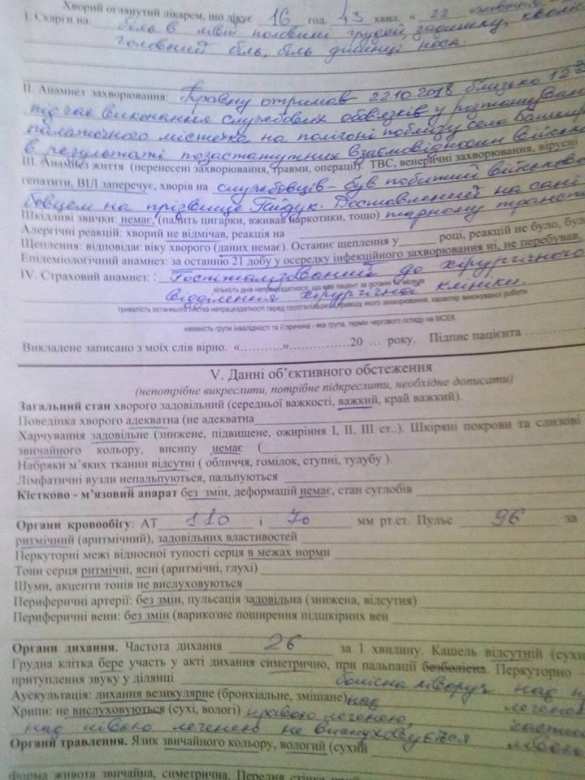 Хворий оглянутий лікарем, що діжує 16 год. 43 хвил. « 22
І. Скарги на біль в лівій половині грудей, задишку,
головний біль, біль ділянці носа.
ІІ. Анамнез захворювання: Травму отримав 22.10.2018 близько 12
під час виконання службових обовязків у розташуванні
палаточного містечка на полігоні поблизу села
в результаті позастатутних взаємовідносин
ІІІ. Анамнез життя (перенесені захворювання, травми, операції). ТВС, венеричні захворювання, вірусні
гепатити, ВІЛ заперечує, хворів на службовців - був побитий
на прізвище Доставлений на
Шкідливі звички: немає, (палить цигарки, вживає наркотики, тощо)
Алергічні реакції: хворий не відмічав, реакція на
Щеплення: відповідає віку хворого (даних немає). Останнє щеплення у году році, реакцій не було,
Епідеміологічний анамнез: за останню 21 добу у осередку інфекційного захворювання ні, не перебував.
IV. Страховий анамнез: : Госпіталізований до хірургічного
відділення хірургічної клініки.
Викладене записано з моїх слів вірно. «..........»...............20 ... року. Підпис пацієнта
V. Данні об’єктивного обстеження
(непотрібне викреслити, потрібне підкреслити, необхідне дописати)
Загальний стан хворого задовільний (середньої важкості, важкий, край важкий).
Поведінка хворого адекватна (не адекватна
Харчування задовільне (знижене, підвищене, ожиріння І, ІІ, ІІІ ст..). Шкіряні покрови та слизові
звичайного кольору, висипу немає (
Набряки м’яких тканин відсутні ( обличчя, гомілок, ступні, тулубу ).
Лімфатичні вузли непальпуються, пальпуються
Кістково - м’язовий апарат без змін, деформацій немає, стан суглобів
Органи кровообігу: АТ 110 і 70 мм рт.ст. Пульс 96 за
ритмічний (аритмічний), задовільних властивостей
Перкуторні межі відносної тупості серця в межах норми
Тони серця ритмічні, ясні (аритмічні, глухі)
Шуми, акценти тонів не вислуховуються
Периферичні артерії: без змін, пульсація задовільна (знижена, відсутня)
Периферичні вени: без змін (варикозне поширення підшкірних вен
Органи дихання. Частота дихання 26 за 1 хвилину. Кашель відсутній (сухи
Грудна клітка бере участь у акті дихання симетрично, при пальпації безболісна. Перкуторно
притуплення звуку у ділянці болісна ліворуч над
Аускультація: дихання везикулярне (бронхіальне, змішане) над
Хрипи: не вислуховуються (сухі, вологі) правою легенею,
над лівою легенею не вислуховується
Органи травлення. Язик звичайного кольору, вологий (сухий
форма живота звичайна, симетрична. Передня